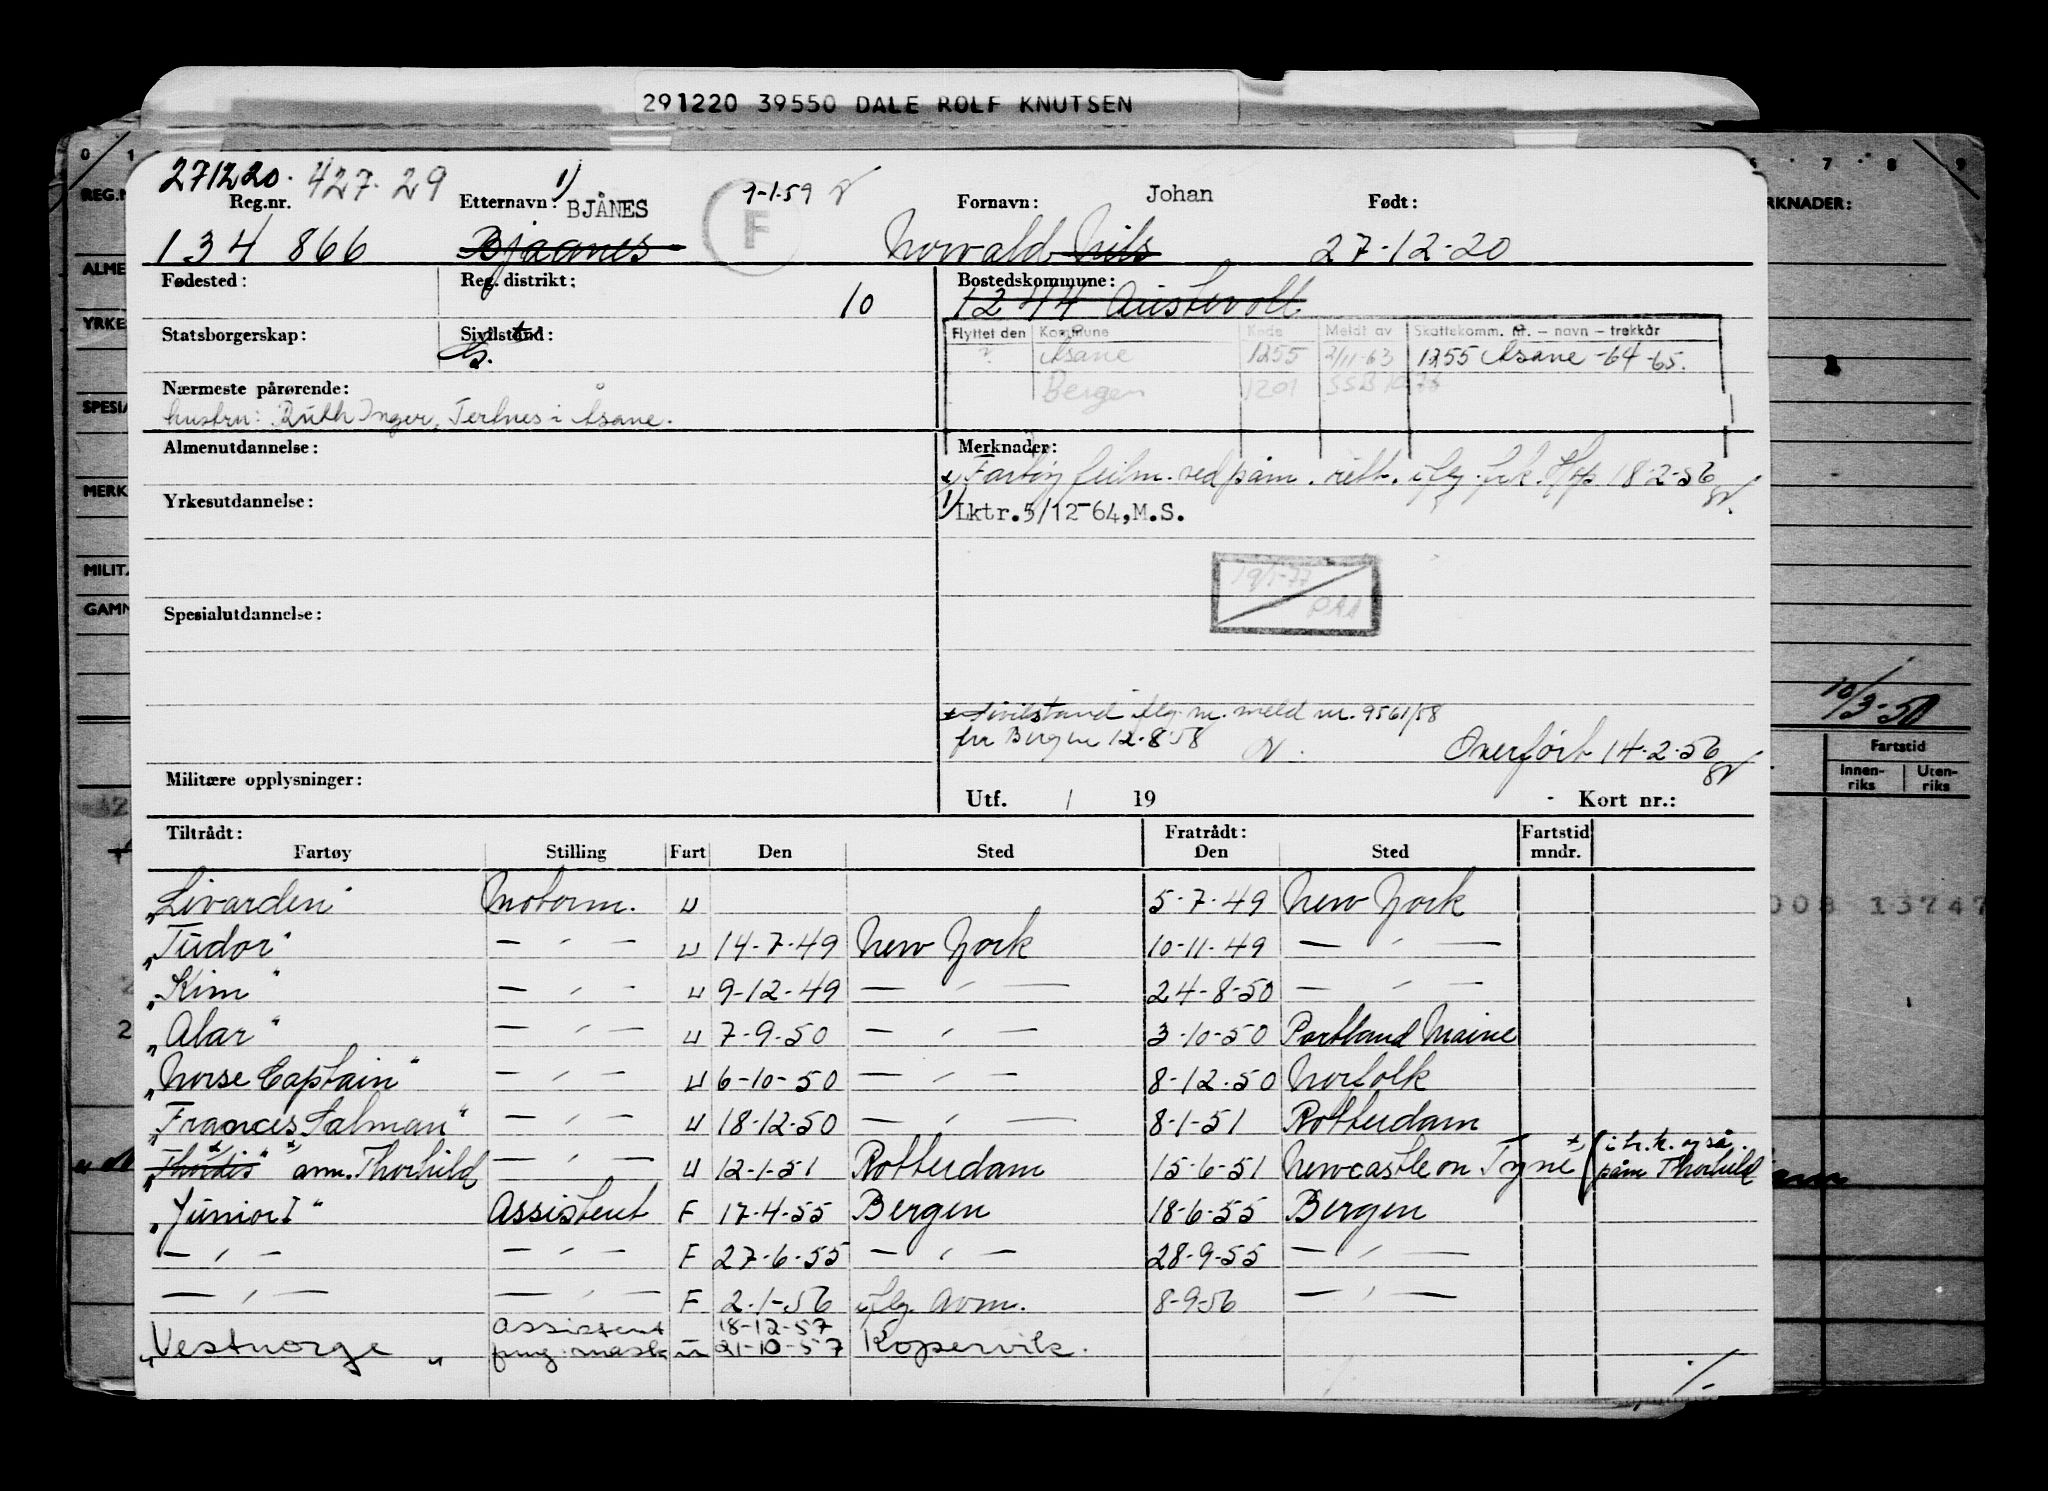 291220 39550 DALE ROLF KNUTSEN
271220. 427.29 1) 9-1-59
Reg.nr. Etternavn: BJÅNES F Fornavn: Johan Født:
134 866 Bjaanes Norvald Nils 27-12-20
Fødested: Reg. distrikt: 10 Bostedskommune: 1244 Austevoll
Statsborgerskap: Sivilstand: G.
Flyttet den Kommune Kode Meldt av Skattekomm. nr. – navn – trekkår
? Åsane 1255 2/11-63 1255 Åsane -64-65.
Bergen 1201 SSB
Nærmeste pårørende:
hustru: Ruth Inger, Tertnes i Åsane.
Almenutdannelse: Merknader:
x) Fartøy feilm. ved påm. rett. iflg. 18-2-56
Yrkesutdannelse: 1) Lktr.5/12-64,M.S.
19/1-77
Spesialutdannelse:
Sivilstand iflg. m. meld nr. 9561/58
fra Bergen 12-8-58
Overført 14-2-56
Militære opplysninger: Utf. / 19 Kort nr.:
Tiltrådt: Fratrådt: Fartstid
Fartøy Stilling Fart Den Sted Den Sted mndr.
"Livarden" Motorm. U 5-7-49 New York
"Tudor" — ' — U 14-7-49 New York 10-11-49 — ' —
"Kim" — ' — U 9-12-49 — ' — 24-8-50 — ' —
"Alar" — ' — U 7-9-50 — ' — 3-10-50 Portland Maine
"Norse Captain" — ' — U 6-10-50 — ' — 8-12-50 Norfolk
"Frances Salman" — ' — U 18-12-50 — ' — 8-1-51 Rotterdam
"Thordis" x anm. Thorhild — ' — U 12-1-51 Rotterdam 15-6-51 Newcastle on Tyne x ( også påm Thorhild
"Junior I" Assistent F 17-4-55 Bergen 18-6-55 Bergen
— ' — — ' — F 27-6-55 — ' — 28-9-55 — ' —
— ' — — ' — F 2-1-56 iflg. Avm. 8-9-56 — ' —
"Vestnorge" Assistent 18-12-57
fung. mask U 21-10-57 Kopervik.
./-
0 1 7 8 9
REG.N
RKNADER:
ALME
YRKE
SPESIA
MERK
MILITÆ
GAMM
10/3-50
Fartstid
Innen-riks Uten-riks
008 13747